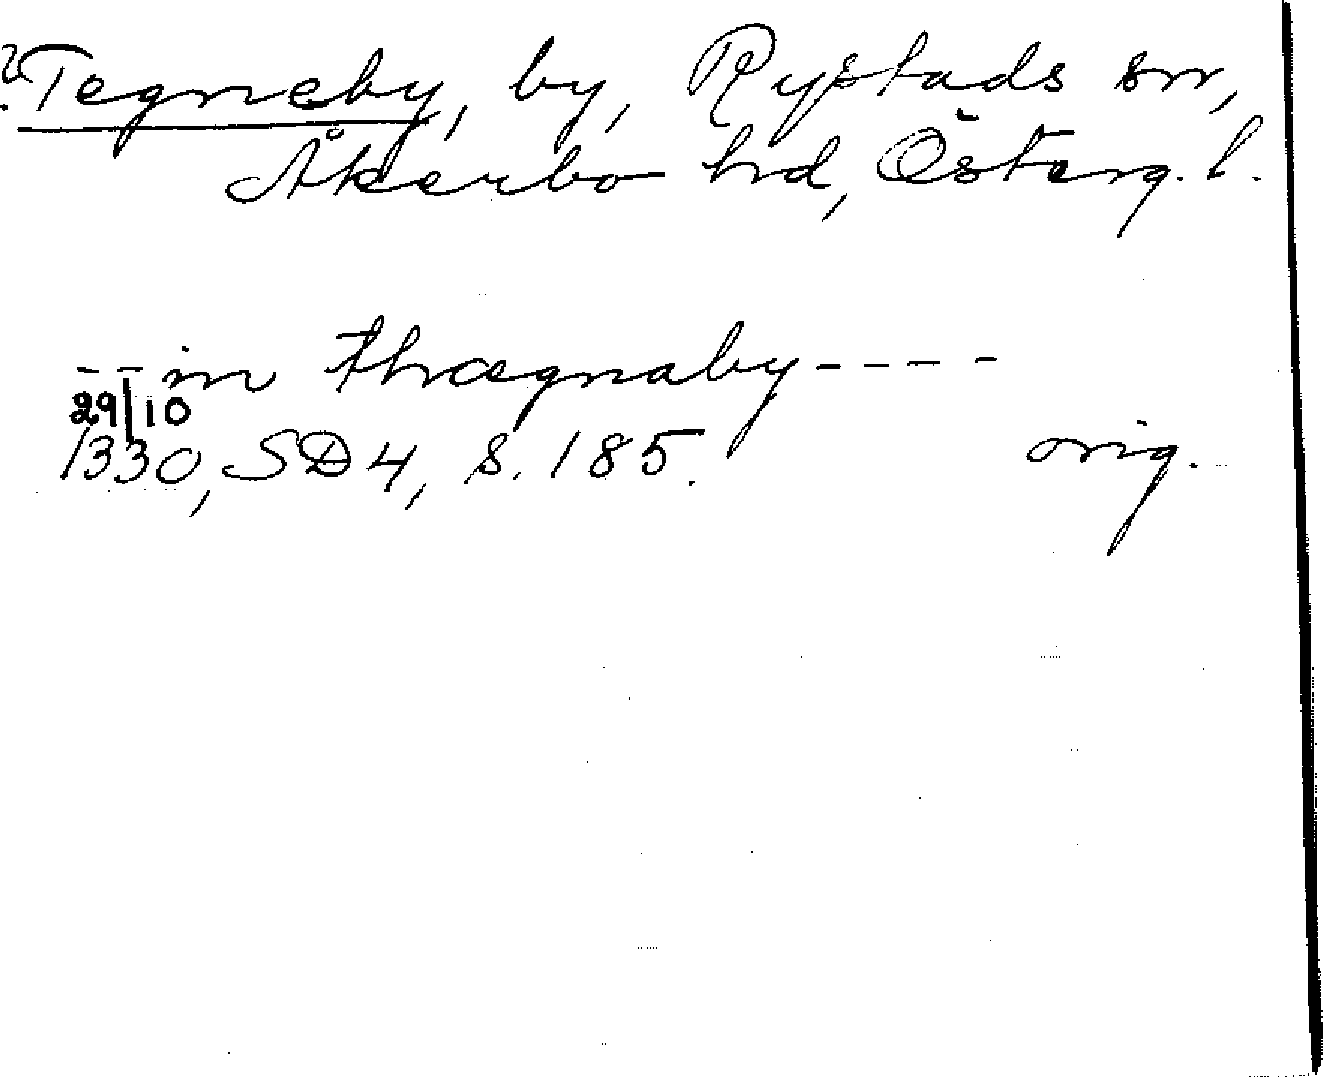 ? Tegneby, by, Rystads sn,
Åkerbo hd, Österg. l.
- - in thrægnaby - - - -
29/10
1330, SD 4, s. 185. orig.